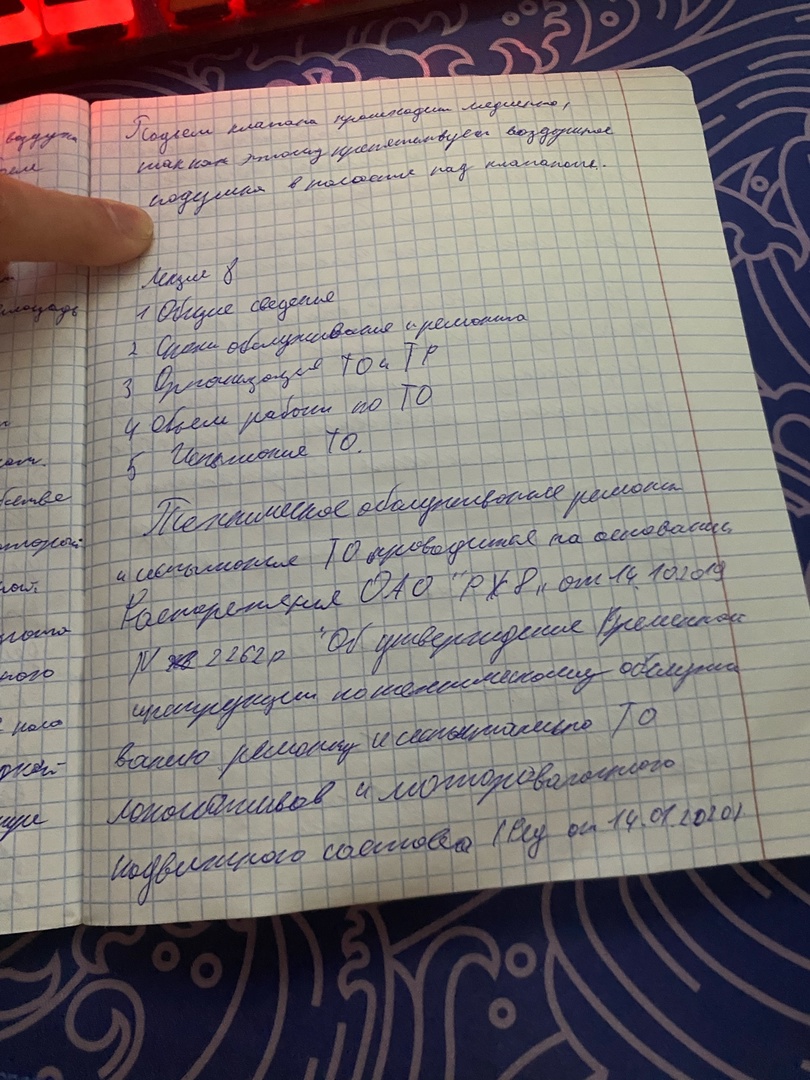 воздуха
Подъем клапана происходит медленно,
так как этому препятствует воздушная
подушка в полости над клапаном.
Лекция 8
1 Общие сведения
2 Сроки обслуживания и ремонта
3 Организация ТО и ТР
4 Объем работы по ТО
5 Испытание ТО.
Техническое обслуживание ремонт
и испытание ТО проводится на основании
Распоряжения ОАО "РЖД" от 14.10.2019
N 2262р "Об утверждении Временной
инструкции по техническому обслужи
ванию ремонту и испытанию ТО
локомотивов и моторовагонного
подвижного состава (Ред от 14.01.2020)
площадь
ного